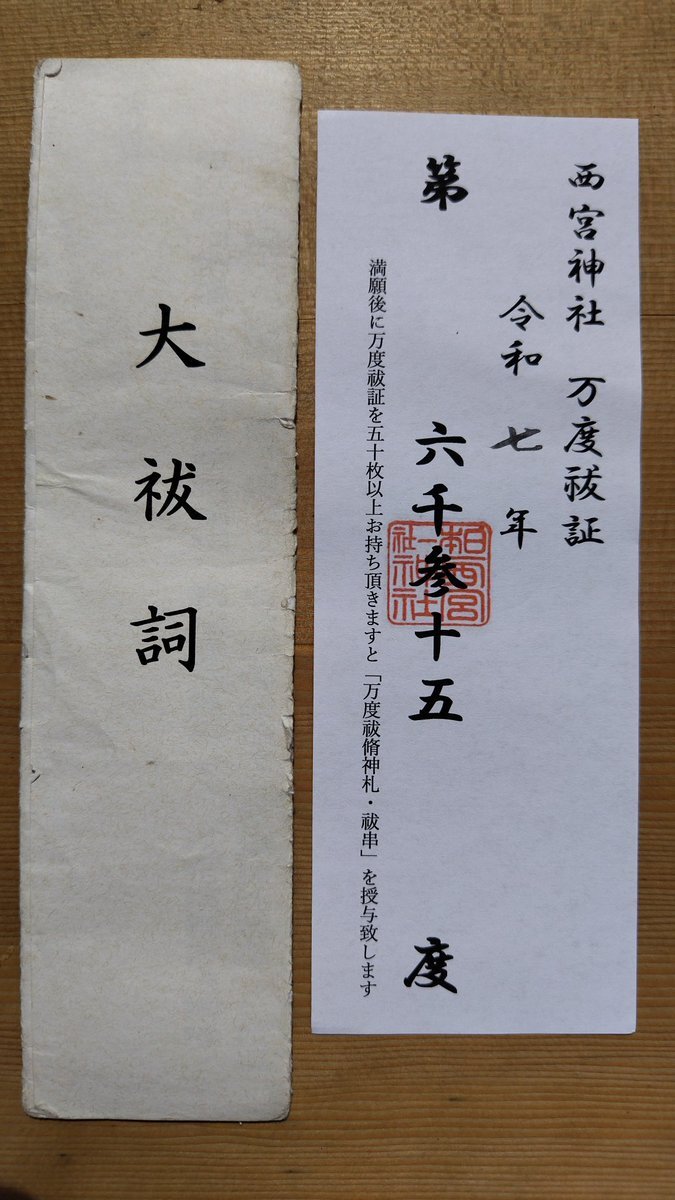 大祓詞
西宮神社 万度祓証
令和七年
第 六千参十五 度
満願後に万度祓証を五十枚以上お持ち頂きますと「万度祓脩神札・祓串」を授与致します